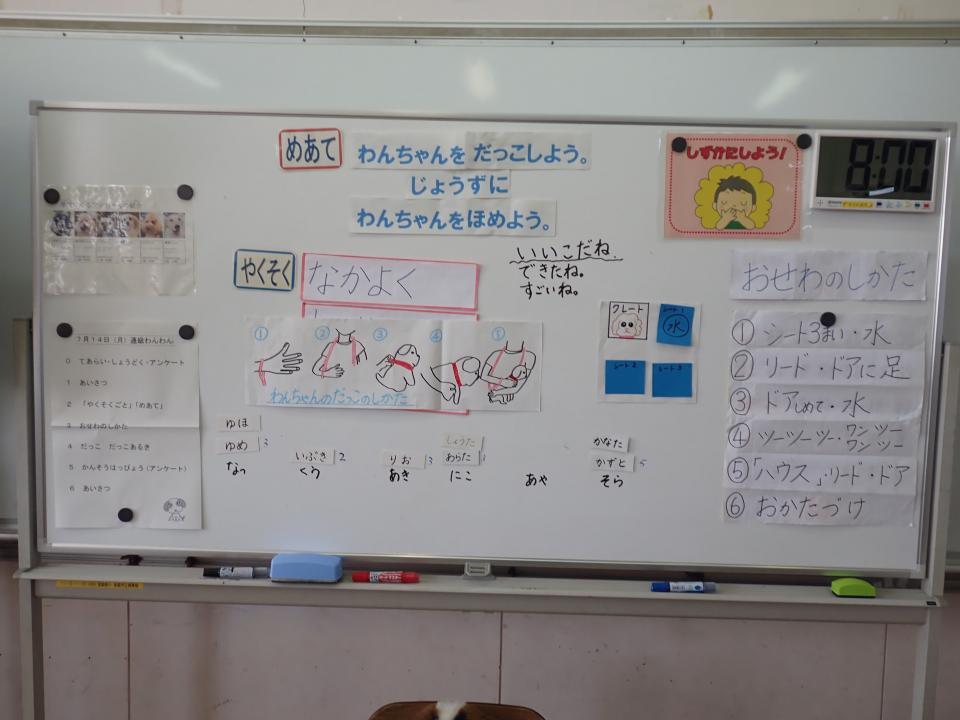 めあて
わんちゃんを だっこしよう。
じょうずに
わんちゃんをほめよう。
しずかにしよう!
8:00
やくそく
なかよく
いいこだね
できたね。
すごいね。
① ② ③ ④ ⑤
わんちゃんのだっこのしかた
クレート
シート1
水
シート2
シート3
おせわのしかた
① シート3まい・水
② リード・ドアに足
③ ドアしめて・水
④ ツーツーツー・ワンツー
ワンツー
⑤「ハウス」・リード・ドア
⑥ おかたづけ
7月14日(月)
わんわん
0 てあらい・しょうどく・アンケート
1 あいさつ
2 「やくそくごと」「めあて」
3 おせわのしかた
4 だっこ だっこあるき
5 かんそうはっぴょう(アンケート)
6 あいさつ
ゆほ
ゆめ 3
なっ
いぶき 2
くう
りお 3
あき
しょうた
あらた
にこ
あや
かなた
かずと
そら